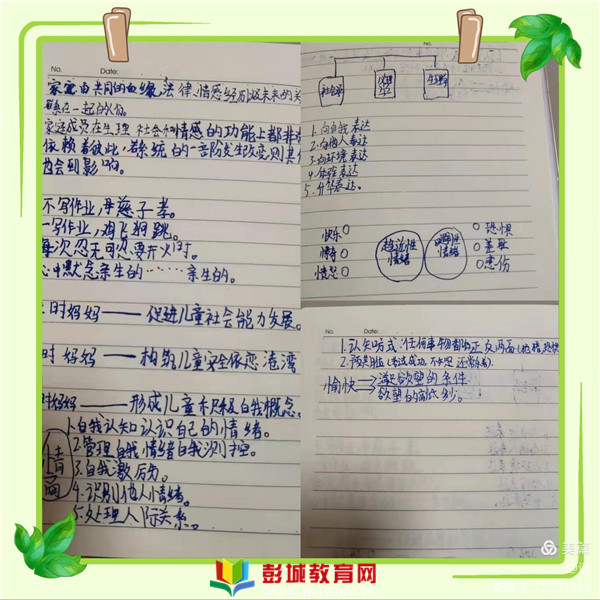 No. Date:
家庭由共同的血缘、法律、情感经历以及未来的
系在一起的人们。
家庭成员在生理 社会和情感的功能上都非
依赖着彼此,若系统的一部分发生改变,则其他
会到影响。
不写作业,母慈子孝。
一写作业,鸡飞狗跳。
每次忍无可忍要开火时
心中默念亲生的……亲生的。
时妈妈——促进儿童社会能力发展。
时妈妈——构筑儿童安全依恋港湾
时妈妈——形成儿童积极自我概念。
情
商
1.自我认知认识自己的情绪。
2.管理自我情绪自我测控。
3.自我激励。
4.识别他人情绪。
5.处理人际关系。
No.
社会学
心理学
生理学
1.向自我表达
2.向他人表达
3.向环境表达
4.体验表达
5.升华表达。
快乐
愤怒
趋近性
情绪
情绪
恐惧
羞耻
悲伤
No. Date:
1.认知方式:任何事物都有正反两面
2.
愉快 满足欲望的条件
欲望的高低多少。
美篇
彭城教育网